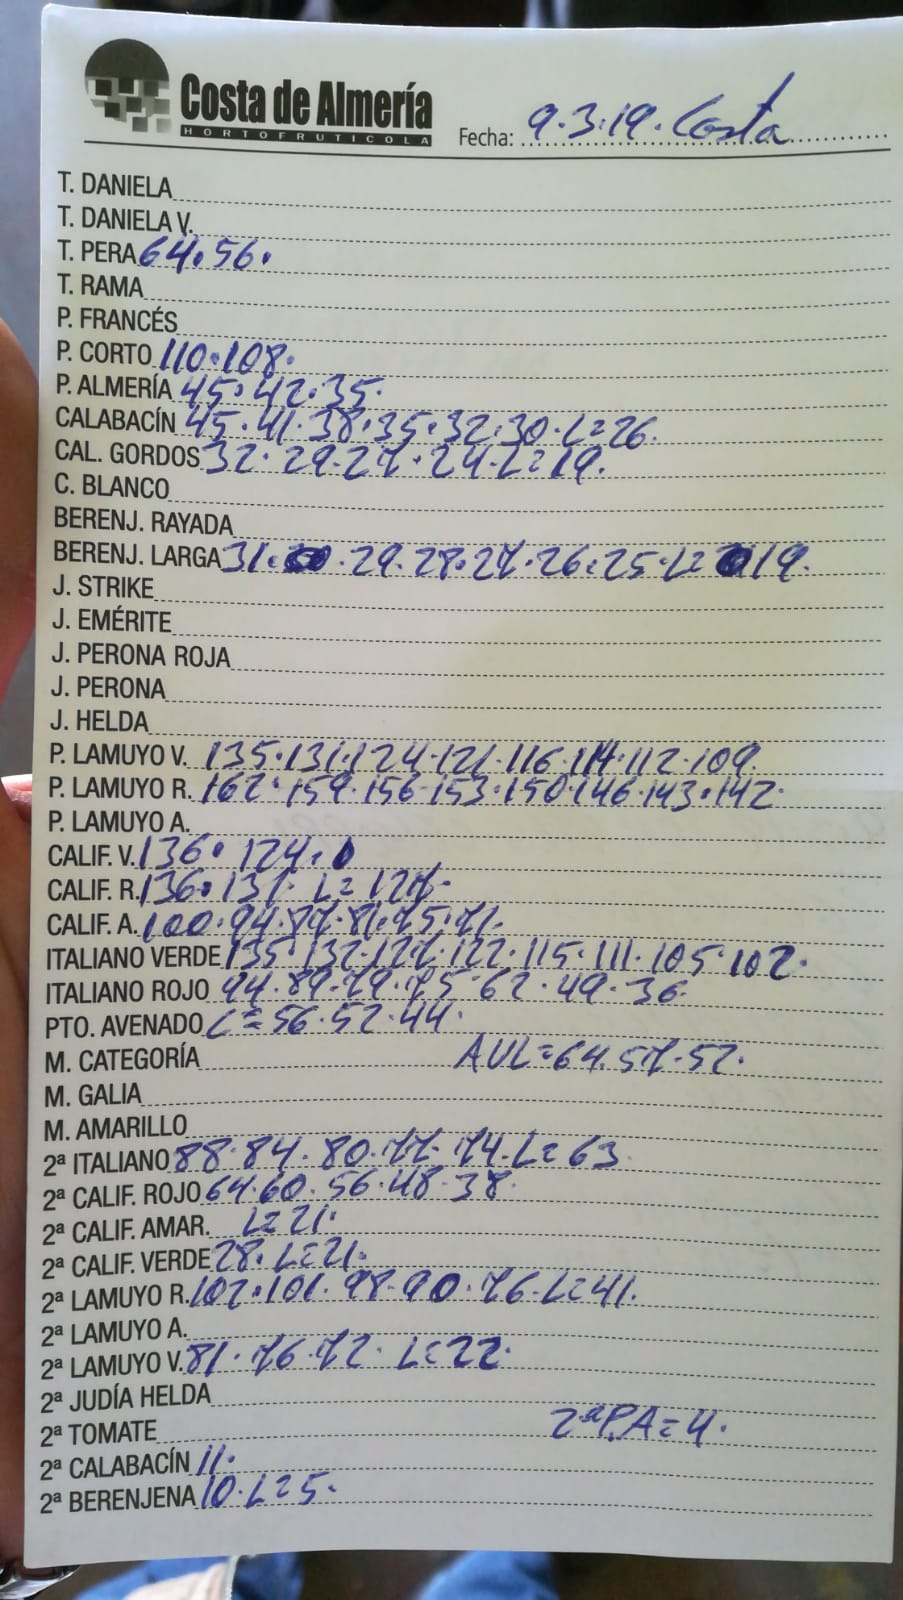 Costa de Almería
HORTOFRUTICOLA
Fecha: 9.3.19. Costa
T. DANIELA
T. DANIELA V.
T. PERA 64.56.
T. RAMA
P. FRANCÉS
P. CORTO 110.108.
P. ALMERÍA 45.42.35.
CALABACÍN 45.41.38.35.32.30.L=26.
CAL. GORDOS 32.29.27.24.L=19.
C. BLANCO
BERENJ. RAYADA
BERENJ. LARGA 31. 29.28.27.26.25.L= 19.
J. STRIKE
J. EMÉRITE
J. PERONA ROJA
J. PERONA
J. HELDA
P. LAMUYO V. 135.131.124.121.116.114.112.109.
P. LAMUYO R. 162.159.156.153.150.146.143.142.
P. LAMUYO A.
CALIF. V. 136.124.
CALIF. R. 136.131. L=127.
CALIF. A. 100.94.87.81.75.71.
ITALIANO VERDE 135.132.127.122.115.111.105.102.
ITALIANO ROJO 94.89.79.75.62.49.36.
PTO. AVENADO L=56.52.44.
M. CATEGORÍA AUL=64.57.52.
M. GALIA
M. AMARILLO
2ª ITALIANO 88.84.80.77.74.L=63.
2ª CALIF. ROJO 64.60.56.48.38.
2ª CALIF. AMAR. L=21.
2ª CALIF. VERDE 28.L=21.
2ª LAMUYO R. 102.101.98.90.76.L=41.
2ª LAMUYO A.
2ª LAMUYO V. 81.76.72. L=22.
2ª JUDÍA HELDA
2ª TOMATE 2ªP.A=4.
2ª CALABACÍN 11.
2ª BERENJENA 10.L=5.